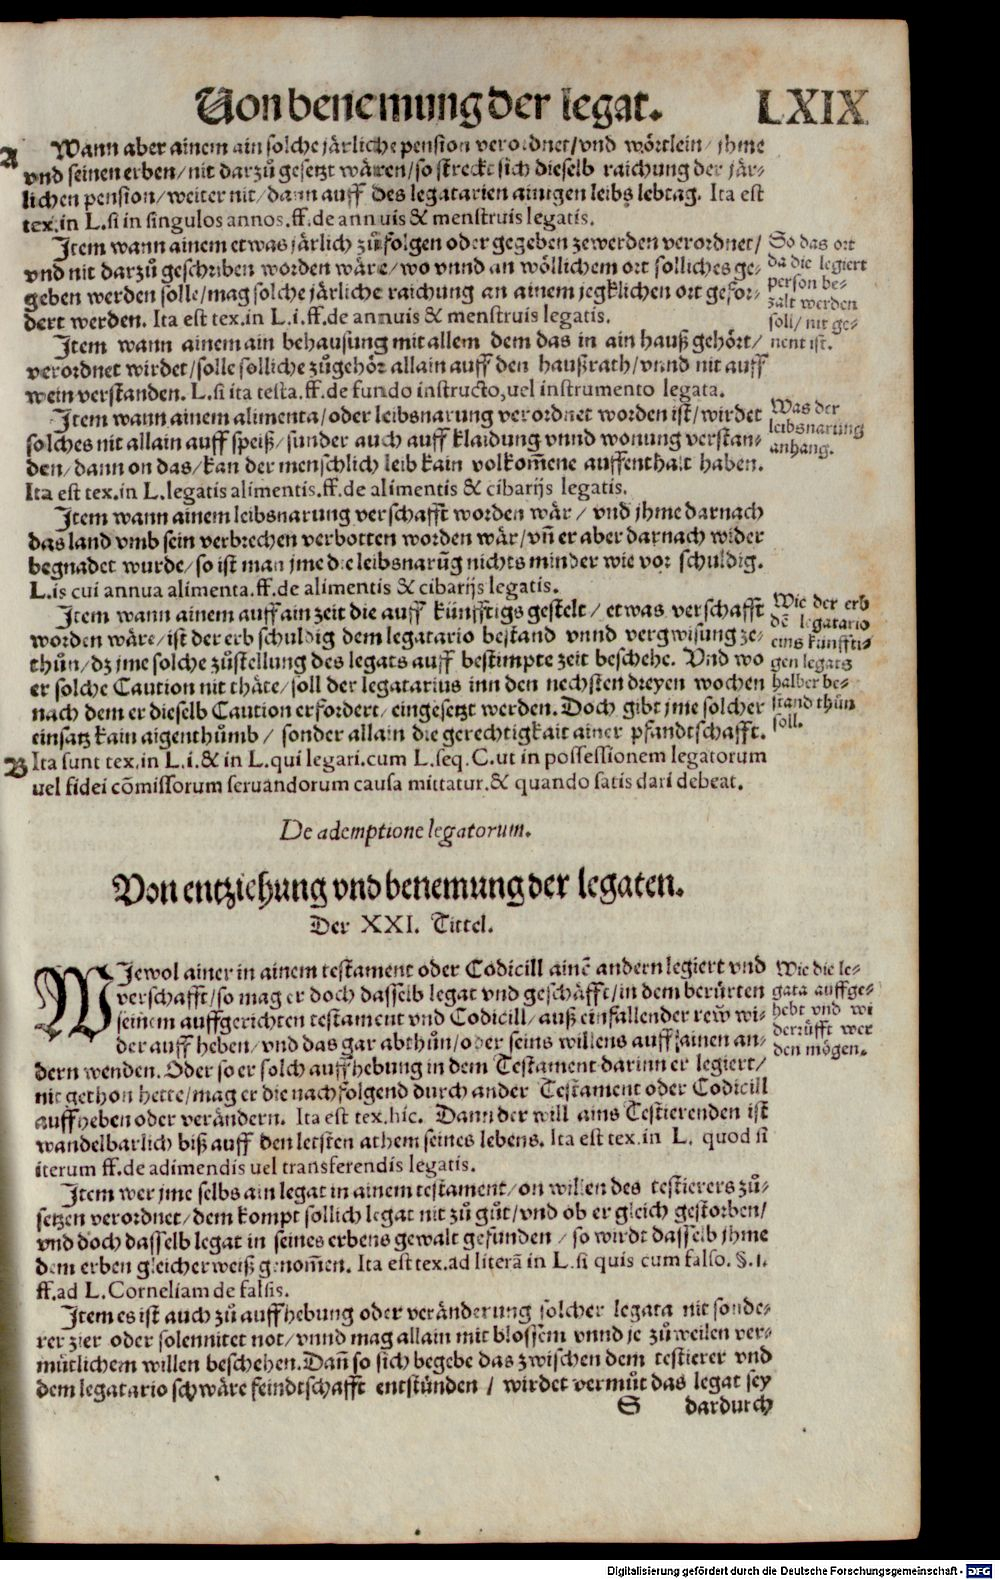 Von benemung der legat. LXIX
A
Wann aber ainem ain solche järliche pension verordnet/vnd wörtlein/ jhme
vnd seinen erben/nit darzů gesetzt wären/so streckt sich dieselb raichung der jär-
lichen pension/weiter nit/dann auff des legatarien ainigen leibs lebtag. Ita est
tex.in L.si in singulos annos.ff.de annuis & menstruis legatis.
Item wann ainem etwas järlich zů folgen oder gegeben zewerden verordnet/
vnd nit darzů geschriben worden wäre/wo vnnd an wöllichem ort solliches ge-
geben werden solle/mag solche järliche raichung an ainem jegklichen ort gefor-
dert werden. Ita est tex.in L.i.ff.de annuis & menstruis legatis.
So das ort
da die legiert
person be-
zalt werden
soll/ nit ge-
nent ist.
Item wann ainem ain behausung mit allem dem das in ain hauß gehört/
verordnet wirdet/solle solliche zůgehör allain auff den haußrath/vnnd nit auff
wein verstanden. L.si ita testa.ff.de fundo instructo,uel instrumento legata.
Item wann ainem alimenta/oder leibsnarung verordnet worden ist/wirdet
solches nit allain auff speiß/sunder auch auff klaidung vnnd wonung verstan-
den/dann on das/kan der menschlich leib kain volkom̄ene auffenthalt haben.
Ita est tex.in L.legatis alimentis.ff.de alimentis & cibarijs legatis.
Was der
leibsnarung
anhang.
Item wann ainem leibsnarung verschafft worden wär/ vnd jhme darnach
das land vmb sein verbrechen verbotten worden wär/vn̄ er aber darnach wider
begnadet wurde/so ist man jme die leibsnarūg nichts minder wie vor schuldig.
L.is cui annua alimenta.ff.de alimentis & cibarijs legatis.
Item wann ainem auff ain zeit die auff künfftigs gestelt/ etwas verschafft
worden wäre/ist der erb schuldig dem legatario bestand vnnd vergwisung ze-
thůn/dz jme solche zůstellung des legats auff bestimpte zeit beschehe. Vnd wo
er solche Caution nit thäte/soll der legatarius inn den nechsten dreyen wochen
nach dem er dieselb Caution erfordert/eingesetzt werden. Doch gibt jme solcher
einsatz kain aigenthůmb/ sonder allain die gerechtigkait ainer pfandtschafft.
B
Ita sunt tex.in L.i.& in L.qui legari.cum L.seq.C.ut in possessionem legatorum
uel fidei cōmissorum seruandorum causa mittatur.& quando satis dari debeat.
Wie der erb
dē legatario
eins künffti-
gen legats
halber be-
stand thůn
soll.
De ademptione legatorum.
Von entziehung vnd benemung der legaten.
Der XXI. Tittel.
WIewol ainer in ainem testament oder Codicill ainē andern legiert vnd
verschafft/so mag er doch dasselb legat vnd geschäfft/in dem berürten
seinem auffgerichten testament vnd Codicill/auß einfallender rew wi-
der auff heben/vnd das gar abthůn/oder seins willens auff ainen an-
dern wenden. Oder so er solch auffhebung in dem Testament darinn er legiert/
nit gethon hette/mag er die nachfolgend durch ander Testament oder Codicill
auffheben oder verändern. Ita est tex.hic. Dann der will ains Testierenden ist
wandelbarlich biß auff den letsten athem seines lebens. Ita est tex.in L. quod si
iterum ff.de adimendis uel transferendis legatis.
Wie die le-
gata auffge-
hebt vnd wi
derrüfft wer
den mögen.
Item wer jme selbs ain legat in ainem testament/on willen des testierers zů-
setzen verordnet/dem kompt sollich legat nit zů gůt/vnd ob er gleich gestorben/
vnd doch dasselb legat in seines erbens gewalt gefunden / so wirdt dasselb jhme
dem erben gleicherweiß genom̄en. Ita est tex.ad literā in L.si quis cum falso.§.i.
ff.ad L.Corneliam de falsis.
Item es ist auch zů auffhebung oder veränderung solcher legata nit sonde-
rer zier oder solennitet not/vnnd mag allain mit blossem vnnd je zůweilen ver-
můtlichem willen beschehen. Dan̄ so sich begebe das zwischen dem testierer vnd
dem legatario schwäre feindtschafft entstünden / wirdet vermůt das legat sey
S dardurch
Digitalisierung gefördert durch die Deutsche Forschungsgemeinschaft - DFG